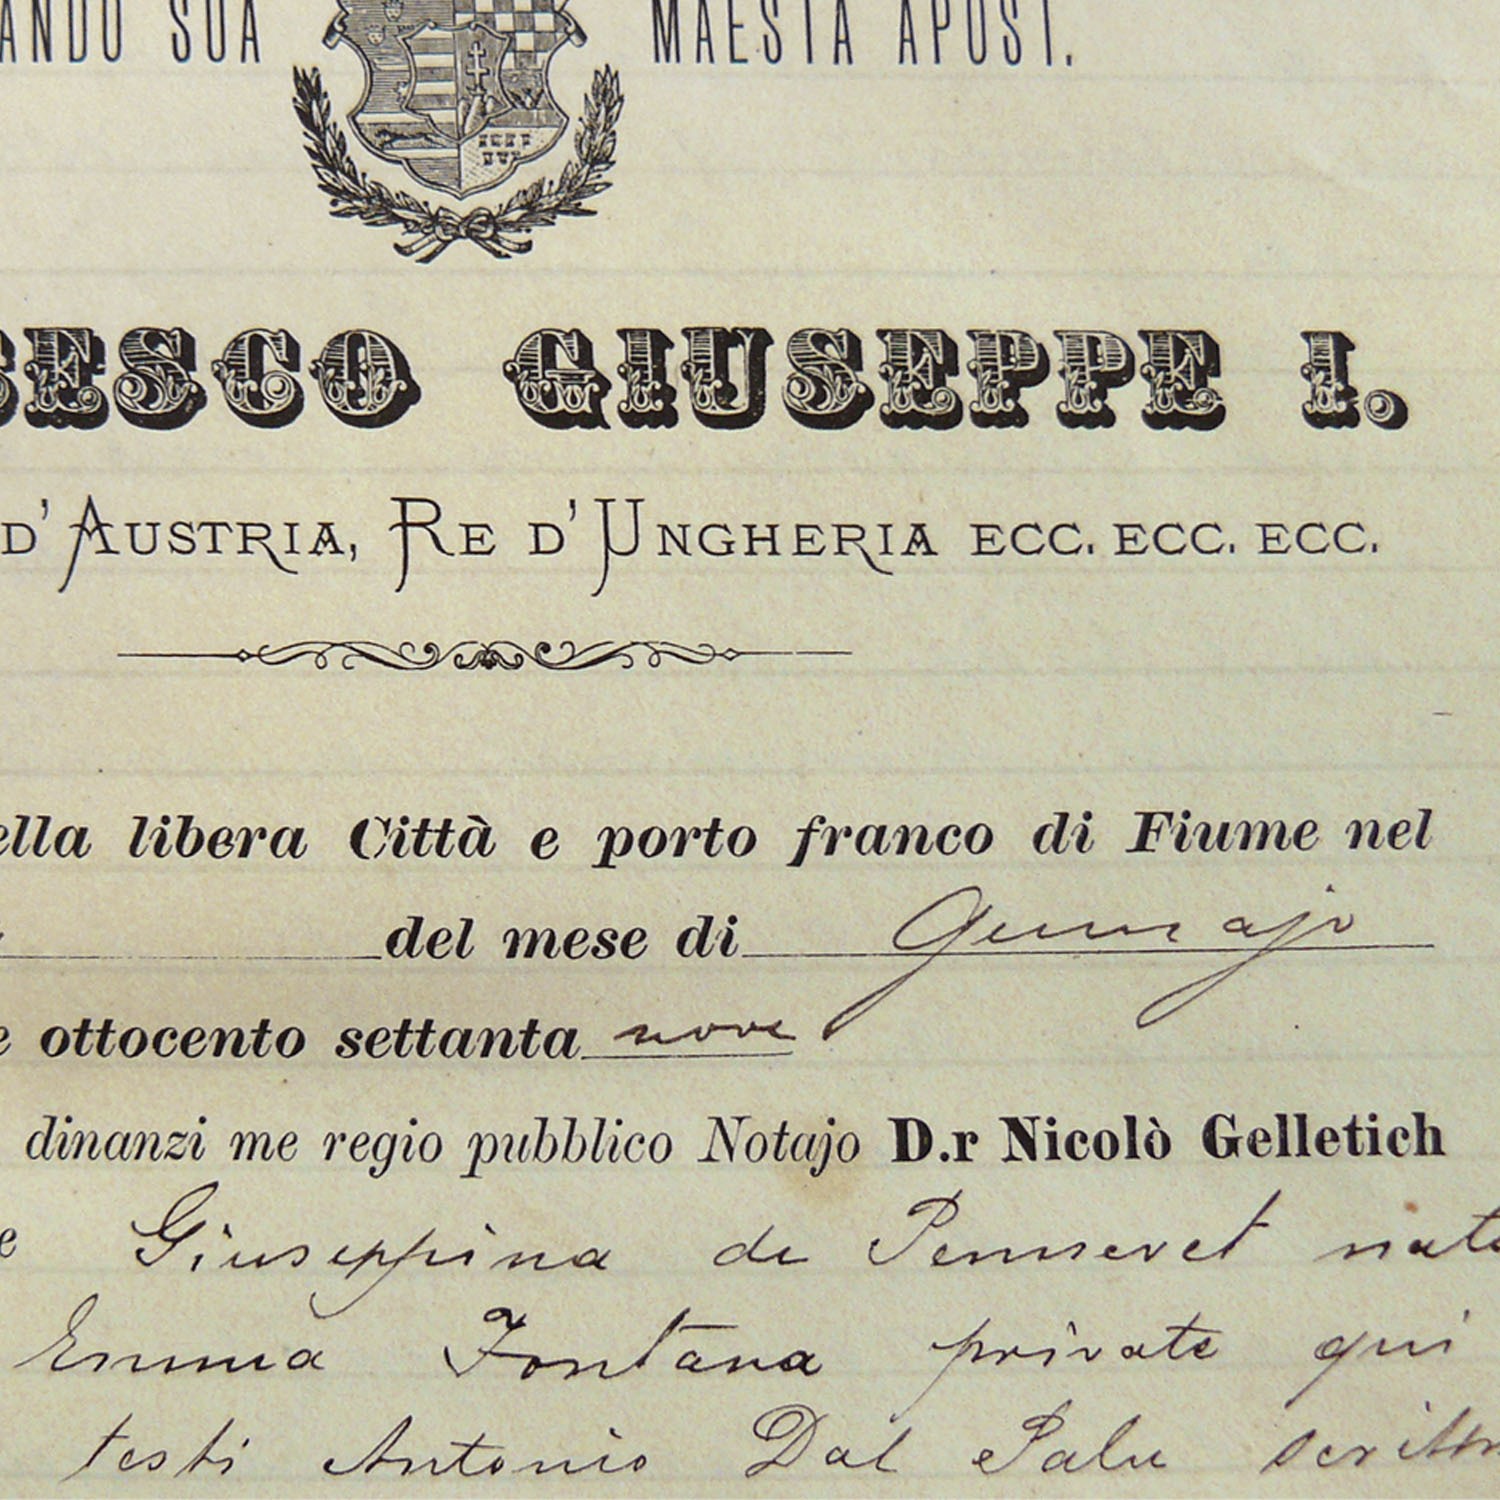 ANDO SUA MAESTÀ APOST.
ESCO GIUSEPPE I.
D'AUSTRIA, RE D'UNGHERIA ECC. ECC. ECC.
ella libera Città e porto franco di Fiume nel
del mese di Gennajo
e ottocento settanta nove
dinanzi me regio pubblico Notajo D.r Nicolò Gelletich
e Giuseppina de nata
Emma Fontana private qui
testi Antonio Dal Palu